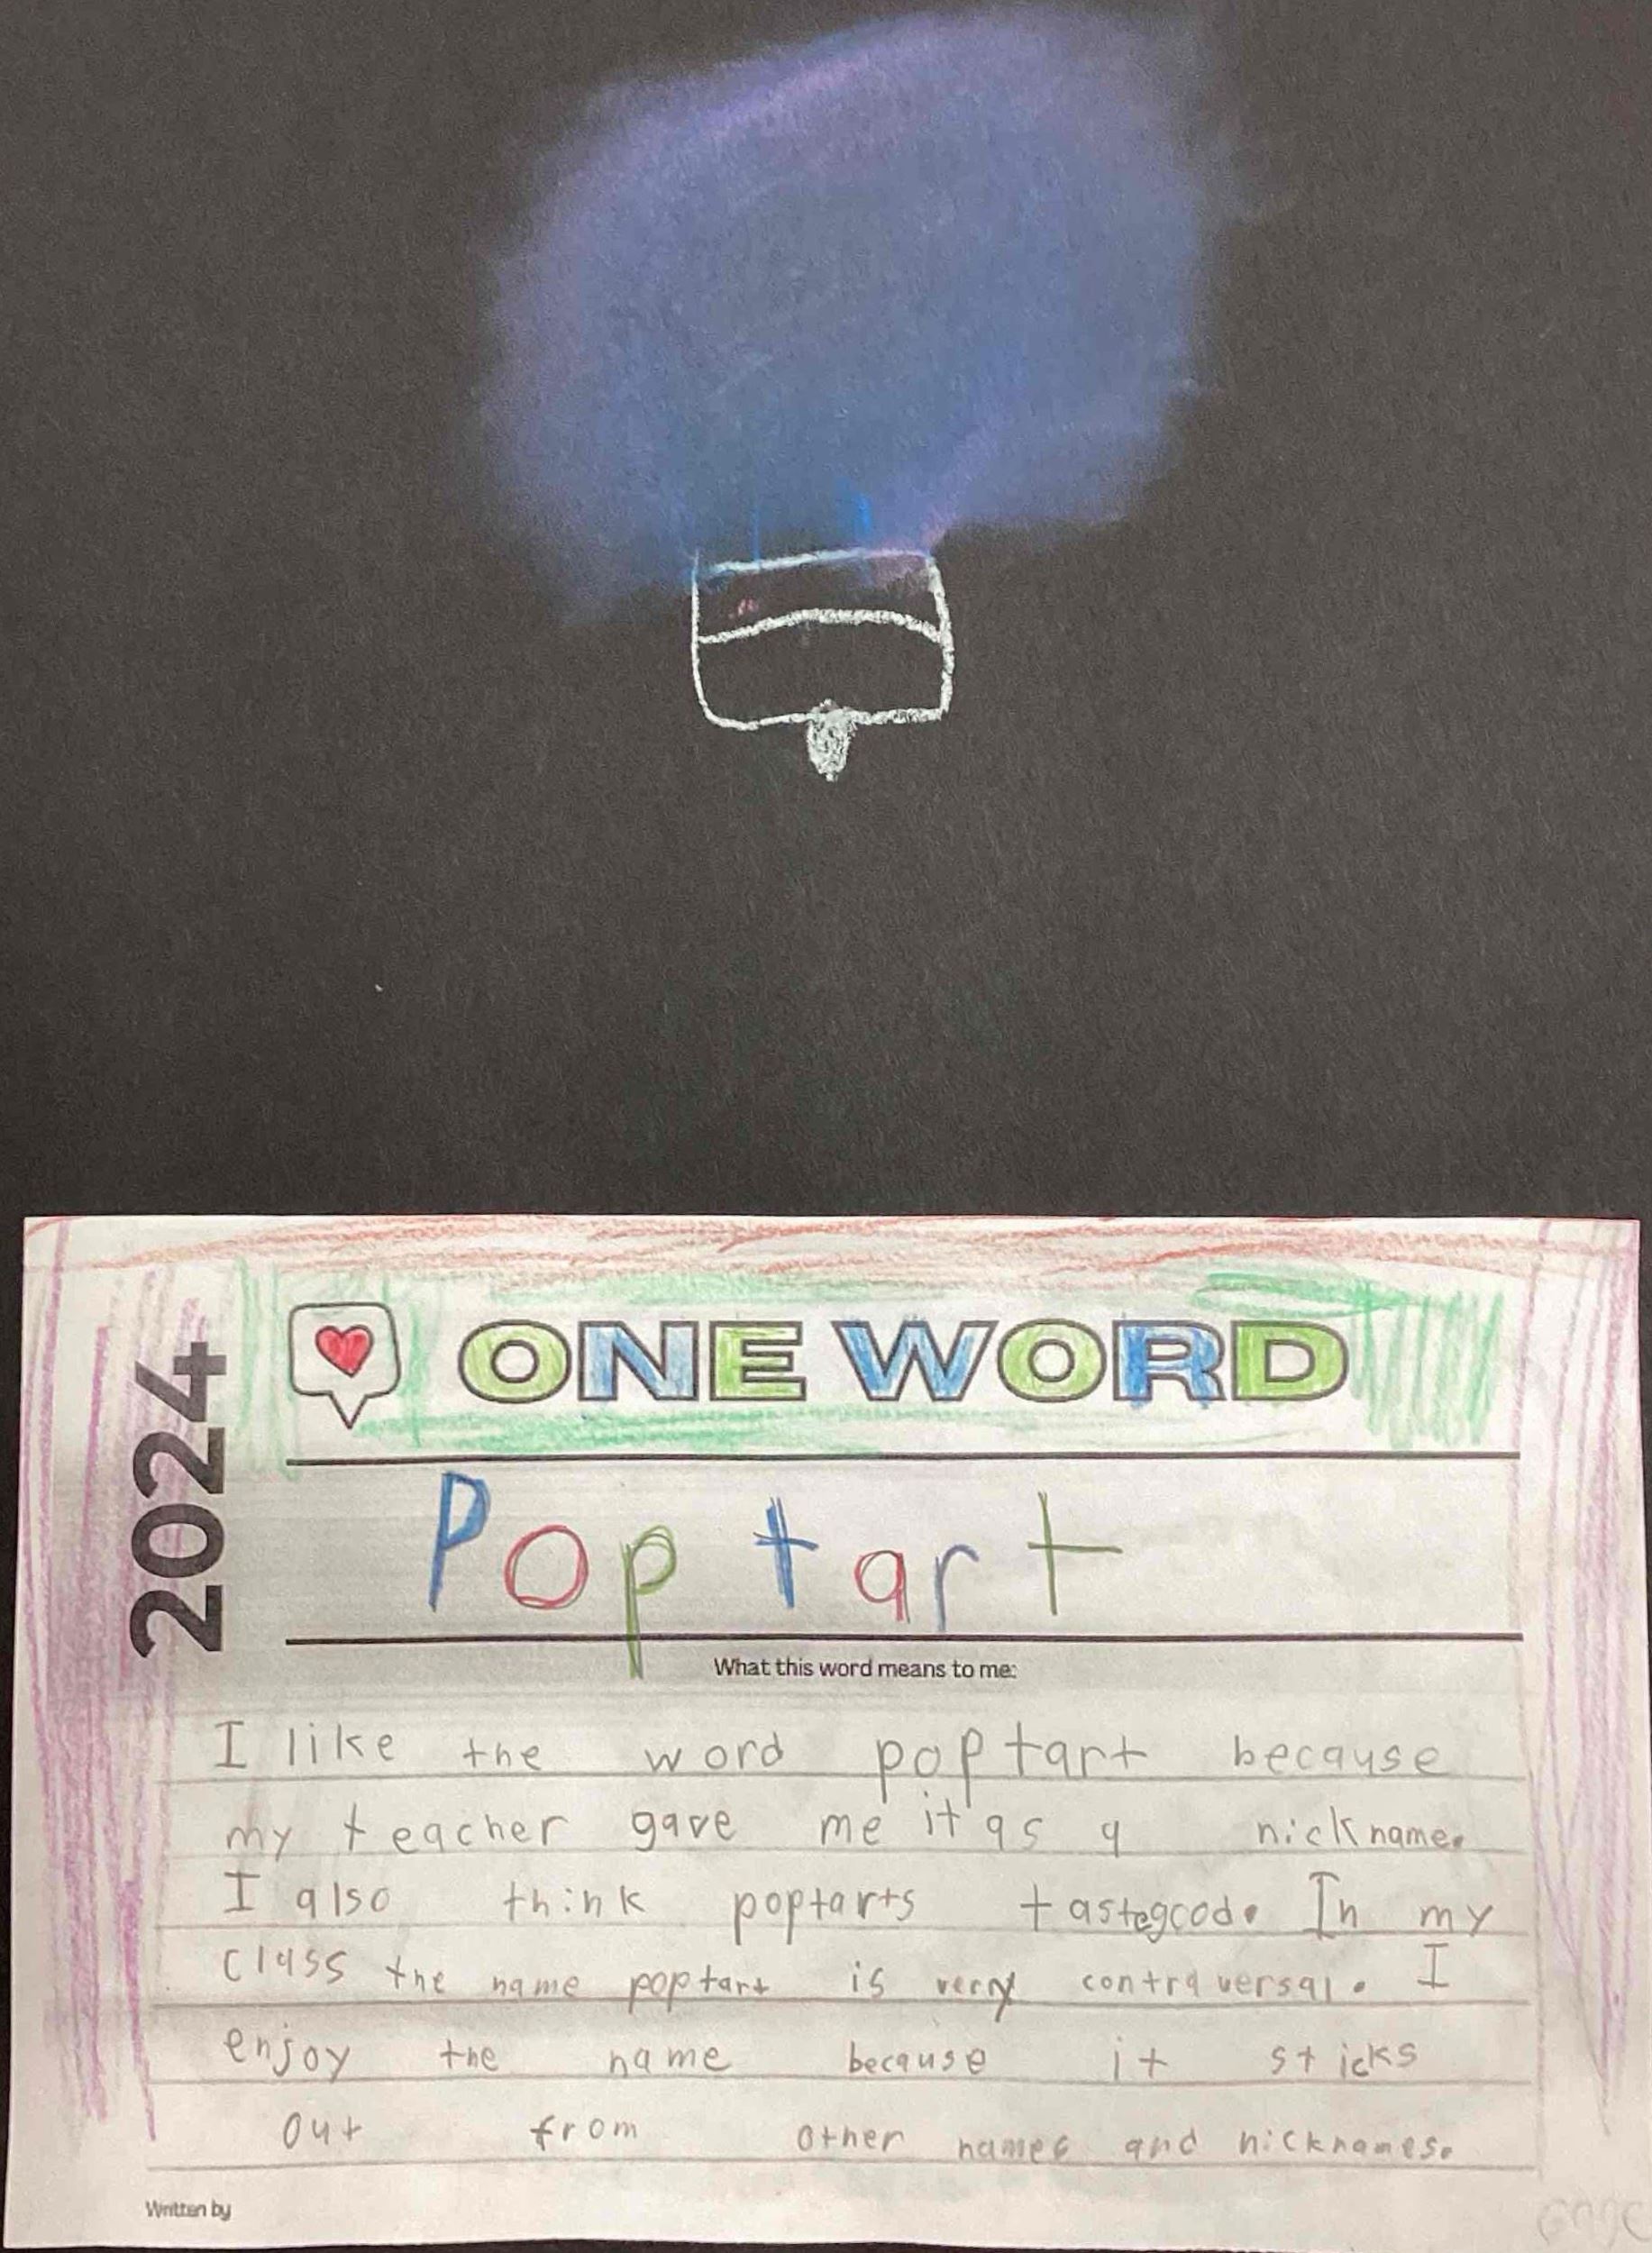 2024
ONE WORD
Poptart
What this word means to me:
I like the word poptart because
my teacher gave me it as a nickname.
I also think poptarts taste good. In my
class the name poptart is very contraversal. I
enjoy the name because it sticks
out from other names and nicknames.
Written by